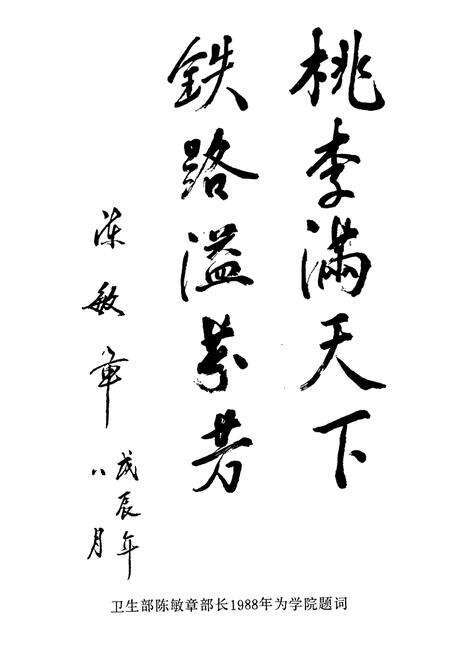 桃李满天下
铁路溢芬芳
陈敏章
戊辰年
八月
卫生部陈敏章部长1988年为学院题词